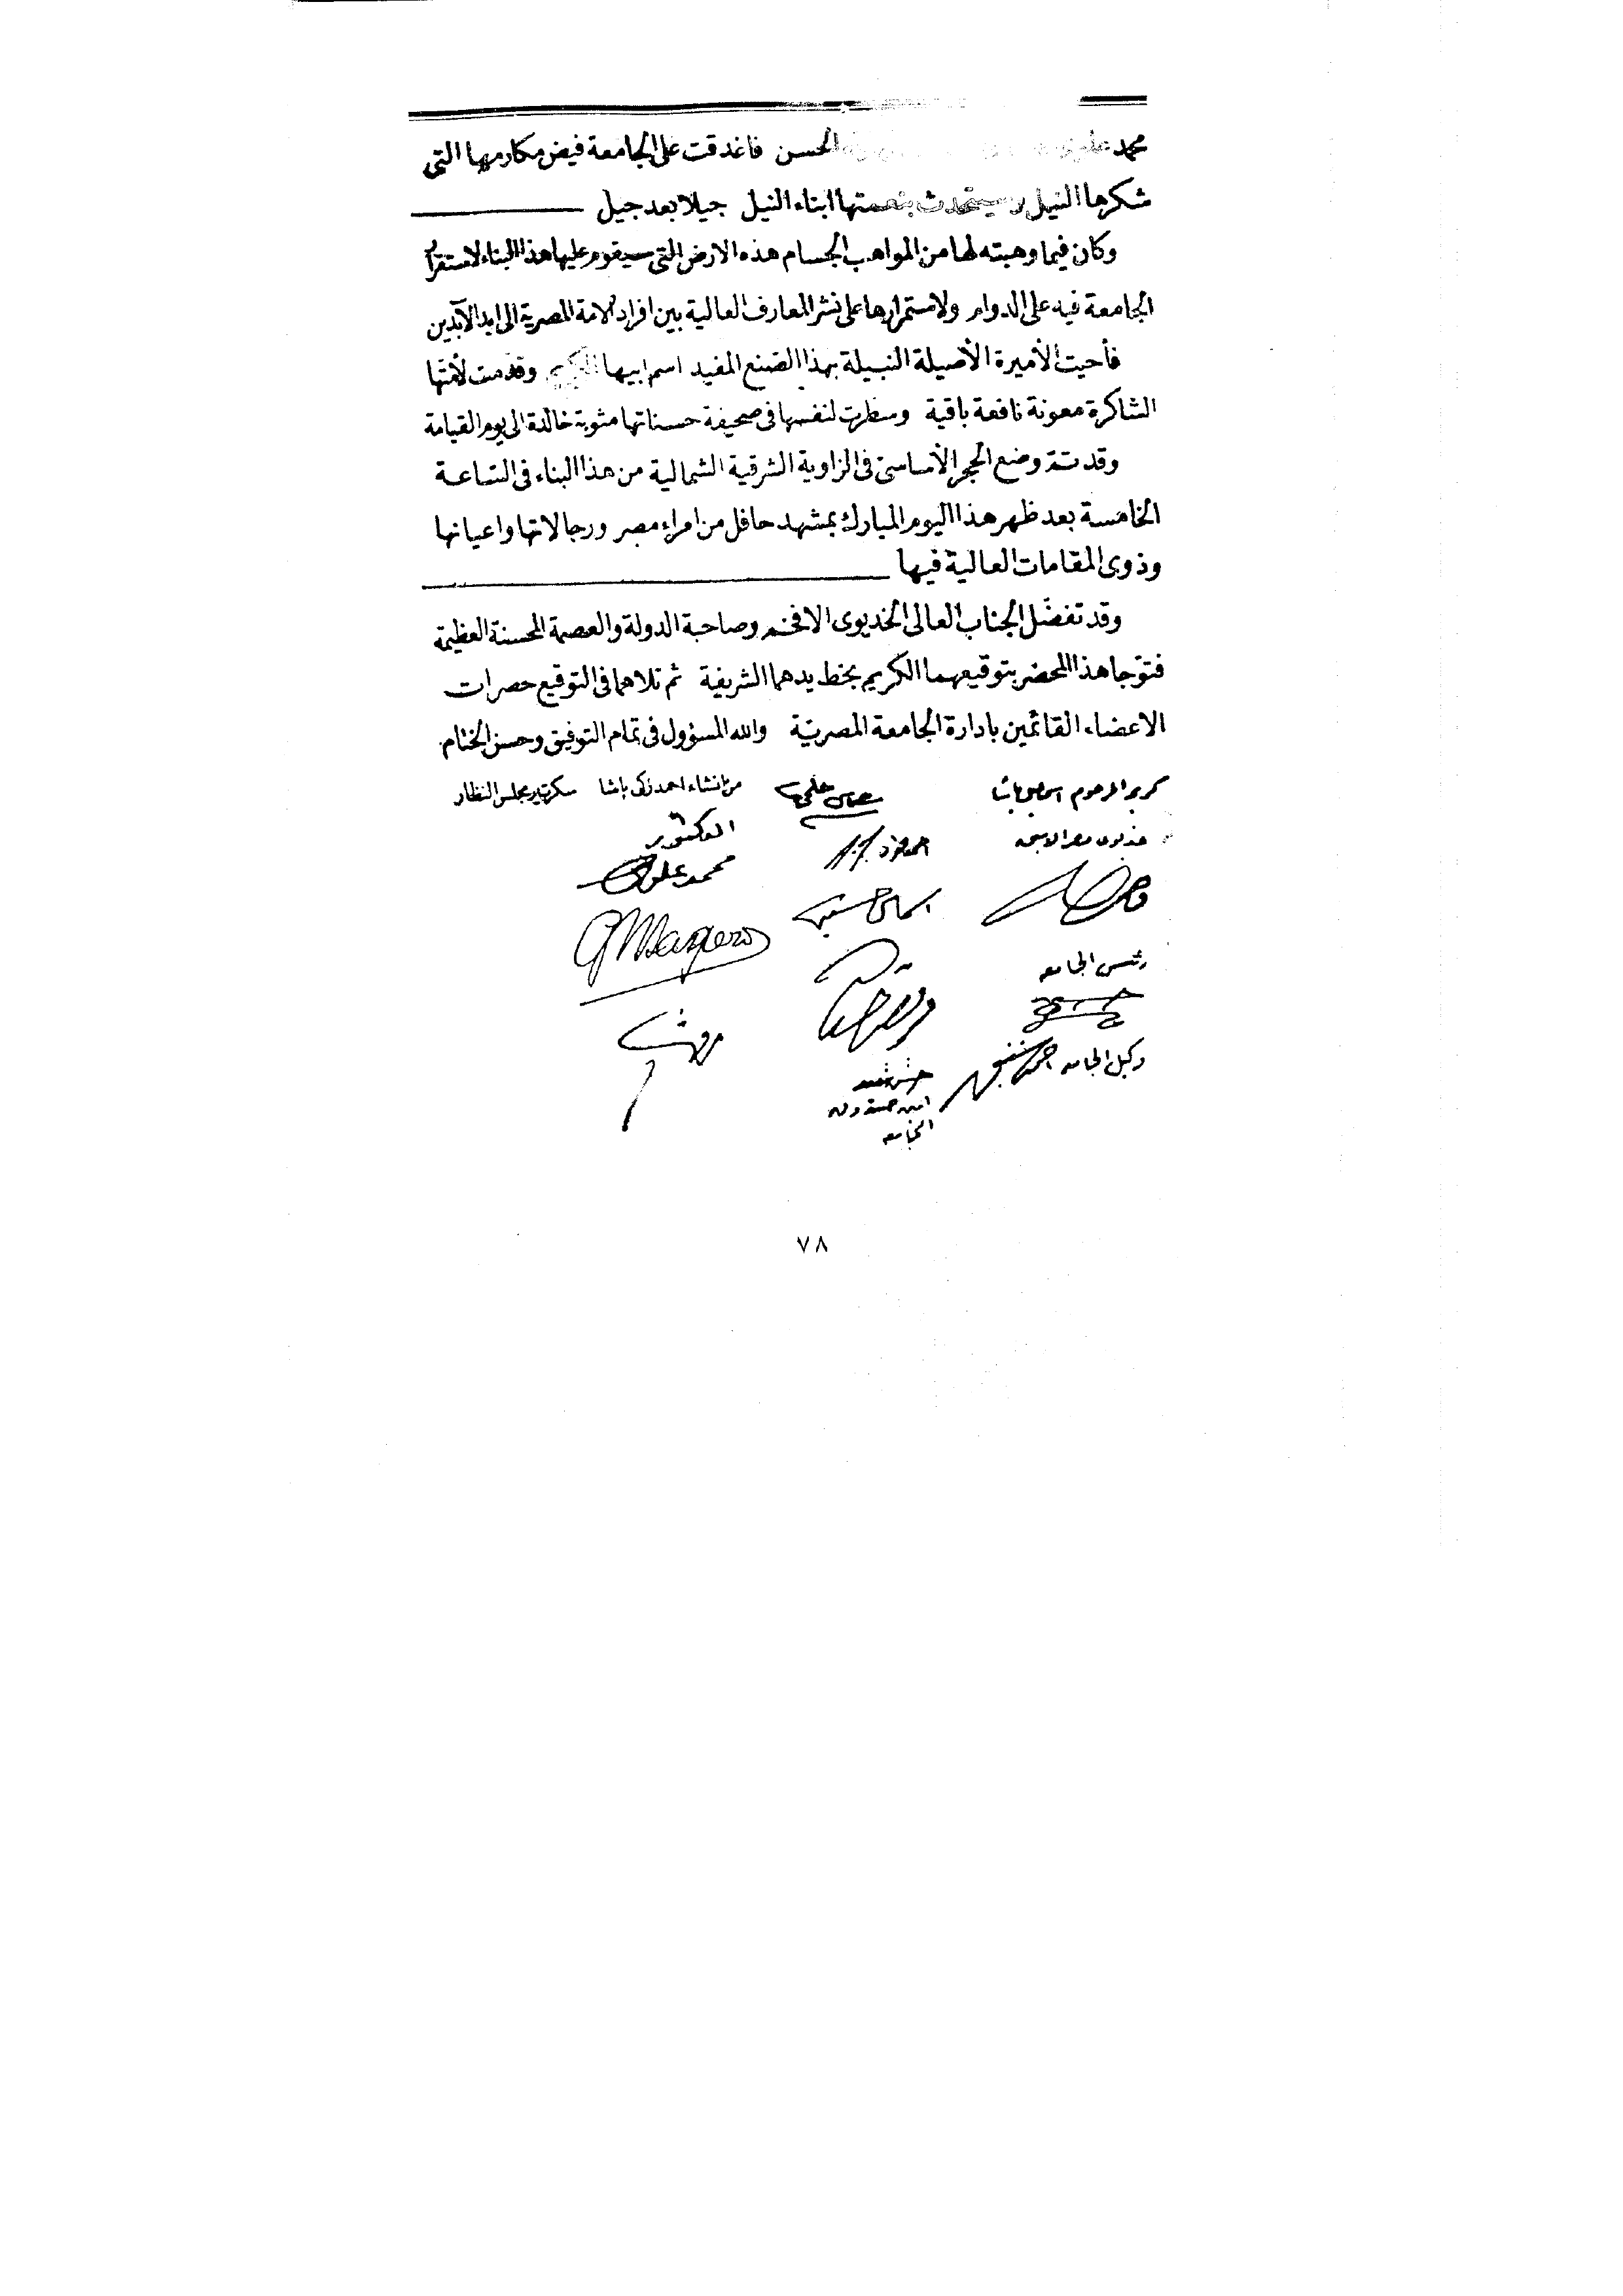 محمد على الحسن فاغدقت على الجامعة فيض مكارمها التى
شكرها النيل وسيتحدث بنعمتها ابناء النيل جيلا بعد جيل
وكان فيما وهبته لها من المواهب الجسام هذه الارض التى سيقوم عليها هذا البناء لاستقرار
الجامعة فيه على الدوام ولاستمرارها على نشر المعارف العالية بين افراد الامة المصرية الى ابد الآبدين
فأحيت الأميرة الأصيلة النبيلة بهذا الصنع المفيد اسم ابيها الكريم وقدمت لأمتها
الشاكرة معونة نافعة باقية وسطرت لنفسها فى صحيفة حسناتها مثوبة خالدة الى يوم القيامة
وقد تم وضع الحجر الأساسى فى الزاوية الشرقية الشمالية من هذا البناء فى الساعة
الخامسة بعد ظهر هذا اليوم المبارك بمشهد حافل من امراء مصر ورجالاتها واعيانها
وذوى المقامات العالية فيها
وقد تفضّل الجناب العالى الخديوى الافخم وصاحبة الدولة والعصمة المحسنة العظيمة
فتوّجا هذا المحضر بتوقيعهما الكريم بخط يدهما الشريفة ثم تلاهما فى التوقيع حضرات
الاعضاء القائمين بادارة الجامعة المصريّة والله المسؤول فى تمام التوفيق وحسن الختام
كريمة المرحوم اسماعيل باشا
خديوى مصر الاسبق
رئيس الجامعة
وكيل الجامعه احمد شفيق
عباس حلمى
احمد فؤاد
اسماعيل حسنين
امين صندوق
الجامعه
من انشاء احمد زكى باشا سكرتير مجلس النظار
الدكتور
محمد علوى
G Maspero
٧٨